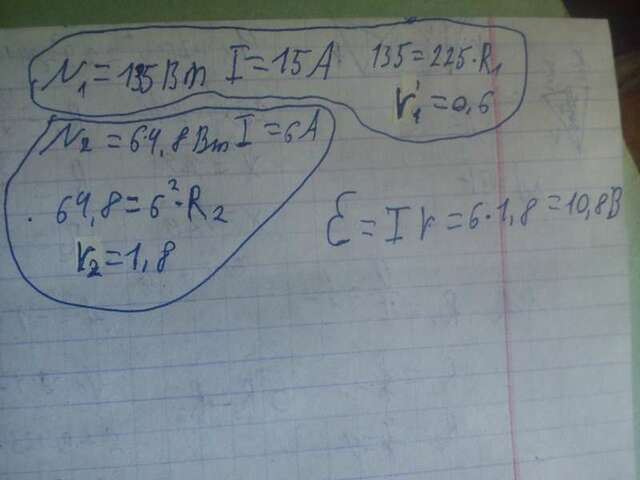 N₁ = 135 Вт I = 15 А 135 = 225·R₁
r₁ = 0,6
N₂ = 64,8 Вт I = 6 А
64,8 = 6²·R₂
r₂ = 1,8
Ɛ = I r = 6·1,8 = 10,8 В